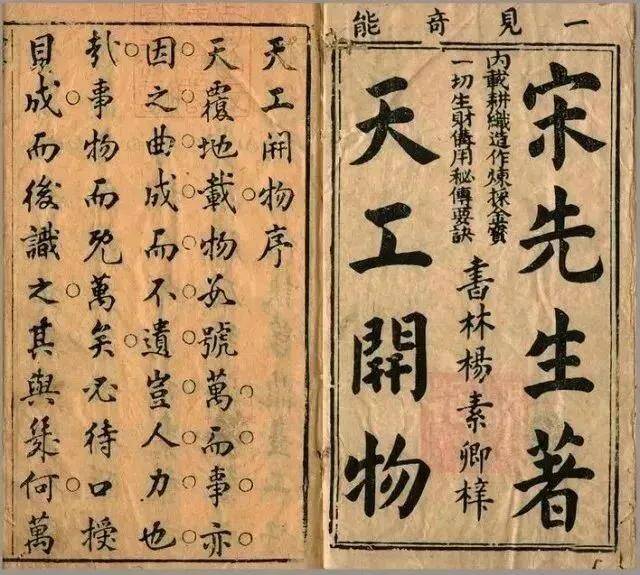 一見竒能
宋先生著
內載耕織造作煉採金寶
一切生財備用秘傳要訣
書林楊素卿梓
天工開物
天工開物序
天覆地載物数號萬而事亦
因之曲成而不遺豈人力也
哉事物而既萬矣必待口授
見成而後識之其與幾何萬